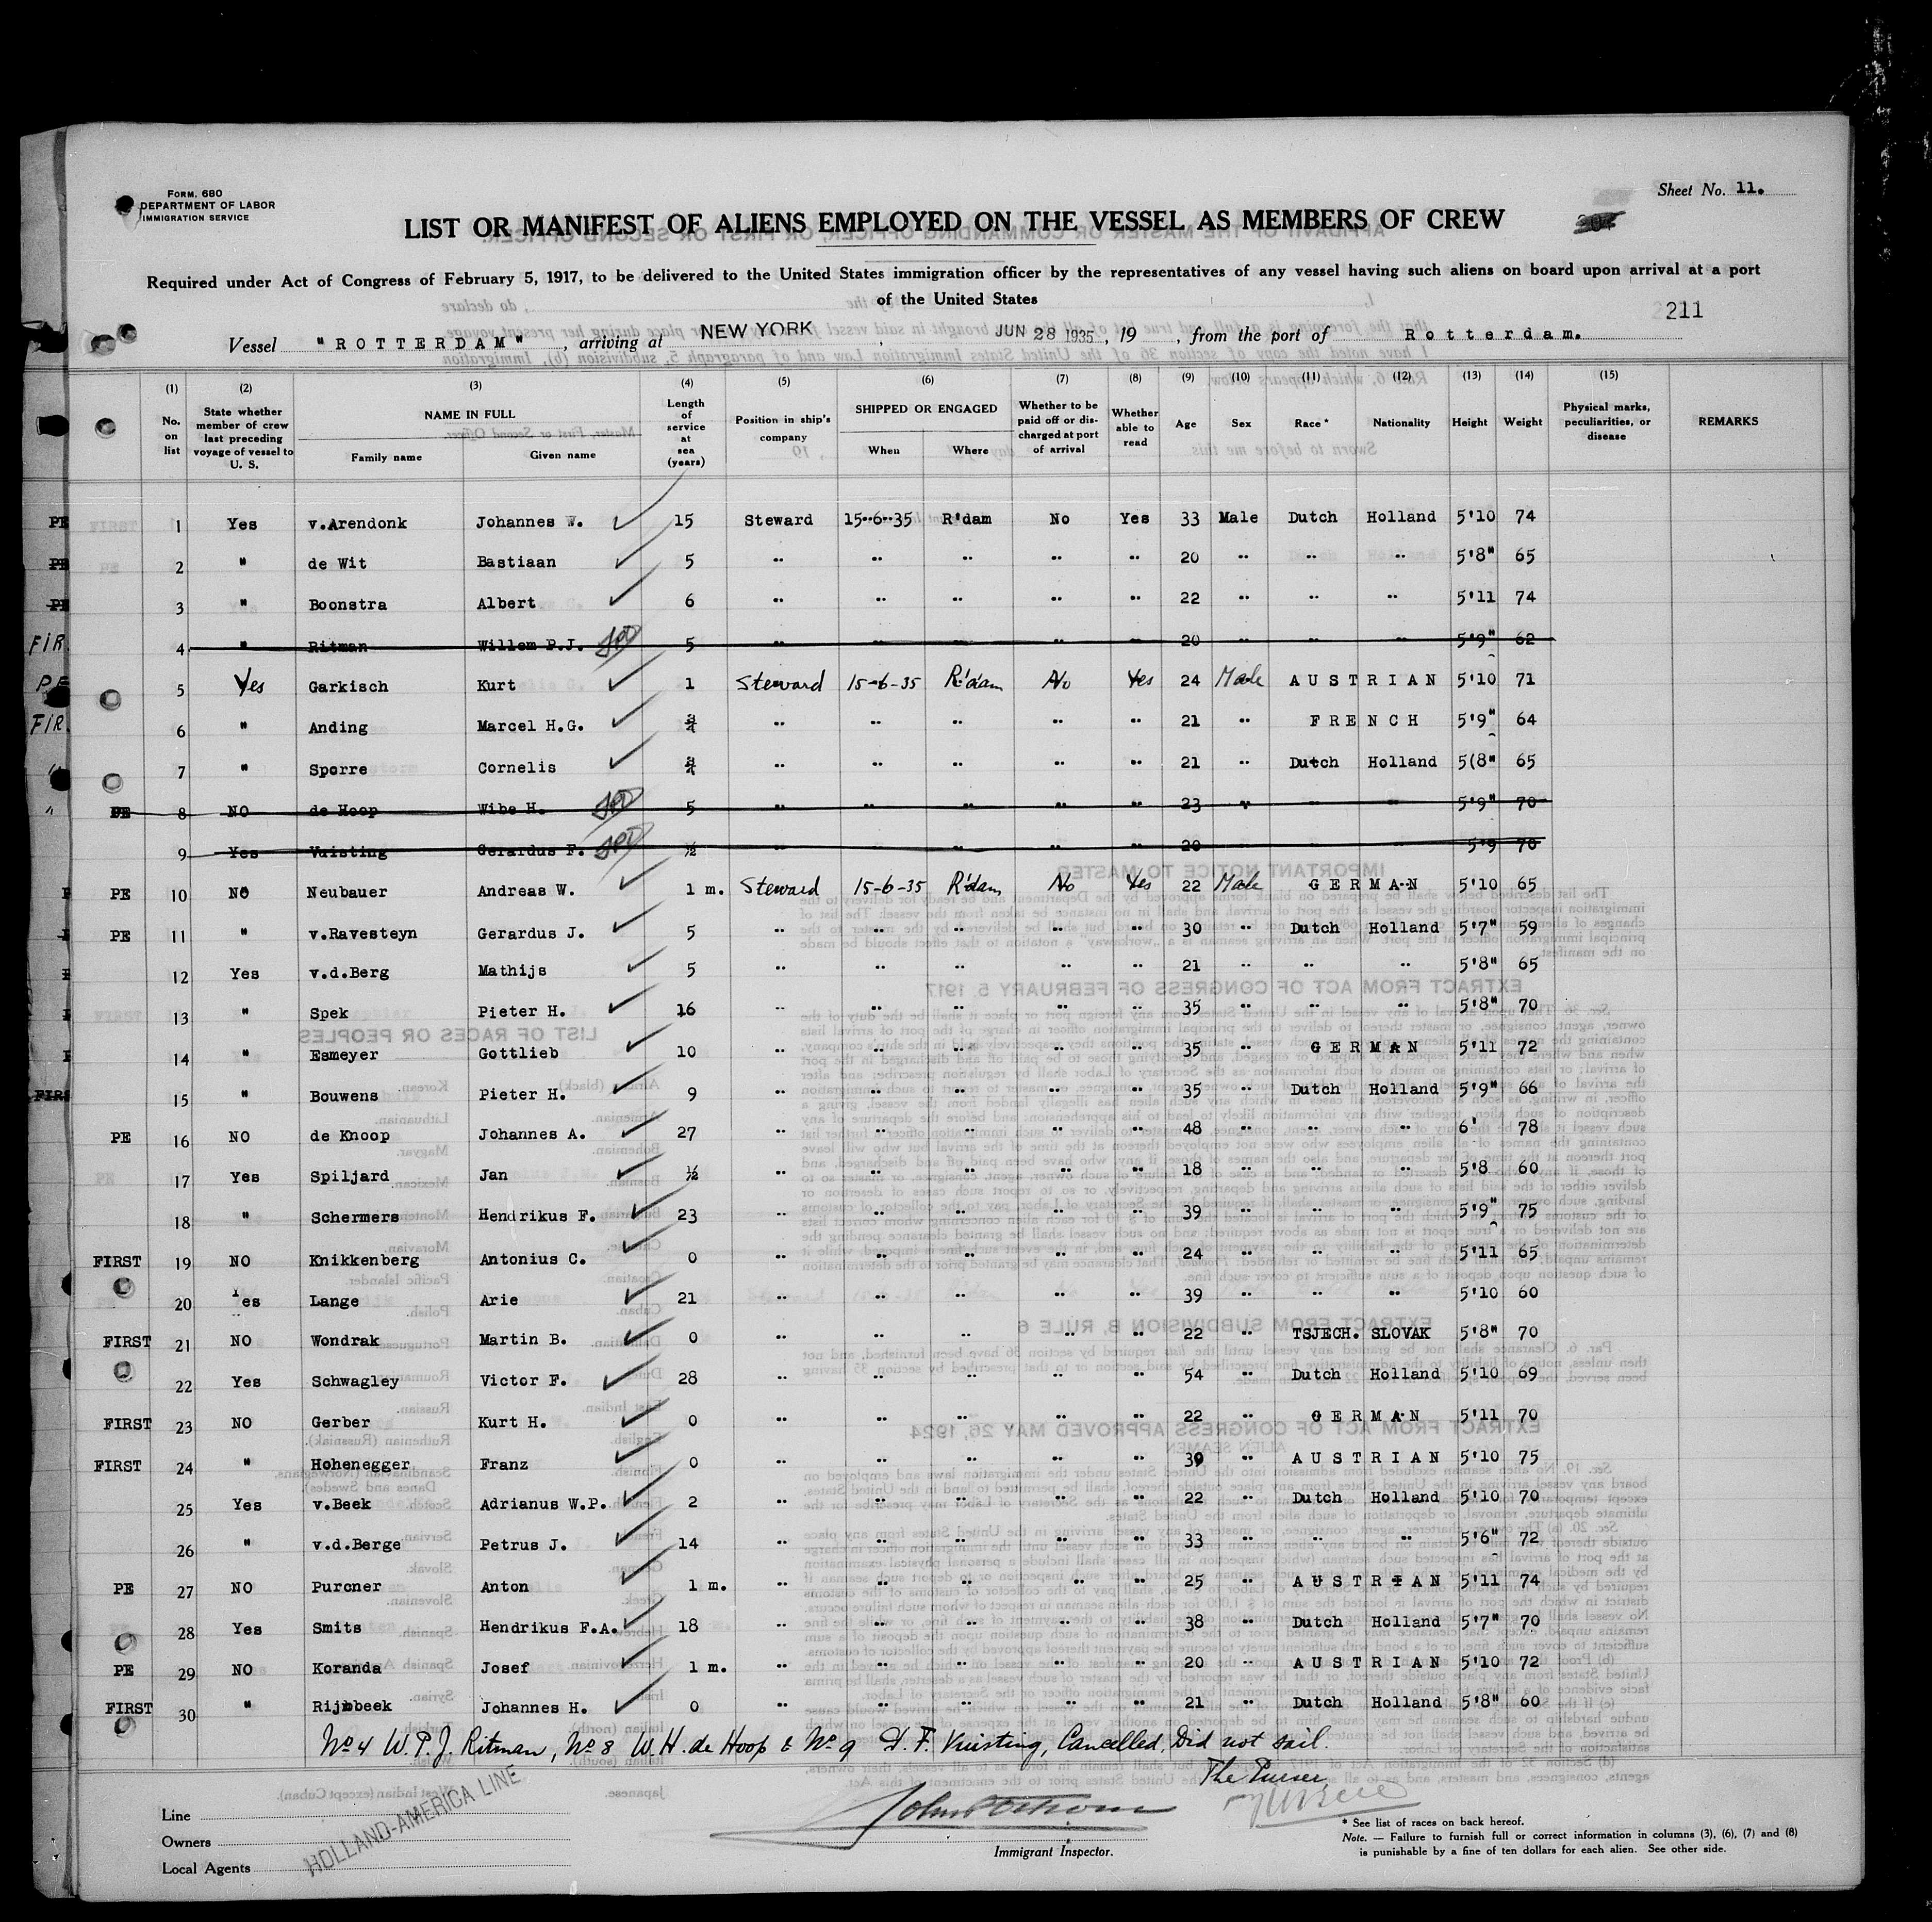 Form. 680
DEPARTMENT OF LABOR
IMMIGRATION SERVICE
Sheet No. 11.
LIST OR MANIFEST OF ALIENS EMPLOYED ON THE VESSEL AS MEMBERS OF CREW
Required under Act of Congress of February 5, 1917, to be delivered to the United States immigration officer by the representatives of any vessel having such aliens on board upon arrival at a port
of the United States
211
Vessel "ROTTERDAM", arriving at NEW YORK, JUN 28 1935, 19 , from the port of Rotterdam.
(1) (2) (3) (4) (5) (6) (7) (8) (9) (10) (11) (12) (13) (14) (15)
No. on list
State whether member of crew last preceding voyage of vessel to U. S.
NAME IN FULL
Family name Given name
Length of service at sea (years)
Position in ship's company
SHIPPED OR ENGAGED
When Where
Whether to be paid off or discharged at port of arrival
Whether able to read
Age Sex Race * Nationality Height Weight
Physical marks, peculiarities, or disease
REMARKS
PE 1 Yes v.Arendonk Johannes W. 15 Steward 15-6-35 R'dam No Yes 33 Male Dutch Holland 5'10 74
PE 2 " de Wit Bastiaan 5 " " " " " 20 " " " 5'8" 65
PE 3 " Boonstra Albert 6 " " " " " 22 " " " 5'11 74
FIR. 4 " Ritman Willem P.J. 5 " " " " " 20 " " " 5'9" 62
PE 5 Yes Garkisch Kurt 1 Steward 15-6-35 R'dam No Yes 24 Male AUSTRIAN 5'10 71
FIR. 6 " Anding Marcel H.G. ¾ " " " " " 21 " FRENCH 5'9" 64
" 7 " Sporre Cornelis ¾ " " " " " 21 " Dutch Holland 5(8" 65
" PE 8 NO de Hoop Wibe H. 5 " " " " " 23 " " " 5'9" 70
9 Yes Vuisting Gerardus F. ½ " " " " 20 " " " 5'9 70
PE 10 NO Neubauer Andreas W. 1 m. Steward 15-6-35 R'dam No Yes 22 Male GERMAN 5'10 65
PE 11 " v.Ravesteyn Gerardus J. 5 " " " " " 30 " Dutch Holland 5'7" 59
12 Yes v.d.Berg Mathijs 5 " " " " " 21 " " " 5'8" 65
13 " Spek Pieter H. 16 " " " " " 35 " " " 5'8" 70
14 " Esmeyer Gottlieb 10 " " " " " 35 " GERMAN 5'11 72
FIRS 15 " Bouwens Pieter H. 9 " " " " " 35 " Dutch Holland 5'9" 66
PE 16 NO de Knoop Johannes A. 27 " " " " " 48 " " " 6' 78
17 Yes Spiljard Jan ½ " " " " " 18 " " " 5'8 60
18 " Schermers Hendrikus F. 23 " " " " " 39 " " " 5'9" 75
FIRST 19 NO Knikkenberg Antonius C. 0 " " " " " 24 " " " 5'11 65
20 Yes Lange Arie 21 " " " " " 39 " " " 5'10 60
FIRST 21 NO Wondrak Martin B. 0 " " " " " 22 " TSJECH. SLOVAK 5'8" 70
22 Yes Schwagley Victor F. 28 " " " " " 54 " Dutch Holland 5'10 69
FIRST 23 NO Gerber Kurt H. 0 " " " " " 22 " GERMAN 5'11 70
FIRST 24 " Hohenegger Franz 0 " " " " " 39 " AUSTRIAN 5'10 75
25 Yes v.Beek Adrianus W.P. 2 " " " " " 22 " Dutch Holland 5'10 70
26 " v.d.Berge Petrus J. 14 " " " " " 33 " " " 5'6" 72
PE 27 NO Purcner Anton 1 m. " " " " " 25 " AUSTRIAN 5'11 74
28 Yes Smits Hendrikus F.A. 18 " " " " " 38 " Dutch Holland 5'7" 70
PE 29 NO Koranda Josef 1 m. " " " " " 20 " AUSTRIAN 5'10 72
FIRST 30 " Rijmbeek Johannes H. 0 " " " " " 21 " Dutch Holland 5'8" 60
No 4 W.P.J. Ritman, No 8 W.H. de Hoop & No 9 G.F. Vuisting, Cancelled, Did not sail.
The Purser,
Line
Owners
Local Agents
HOLLAND-AMERICA LINE
Immigrant Inspector.
* See list of races on back hereof.
Note. — Failure to furnish full or correct information in columns (3), (6), (7) and (8)
is punishable by a fine of ten dollars for each alien. See other side.